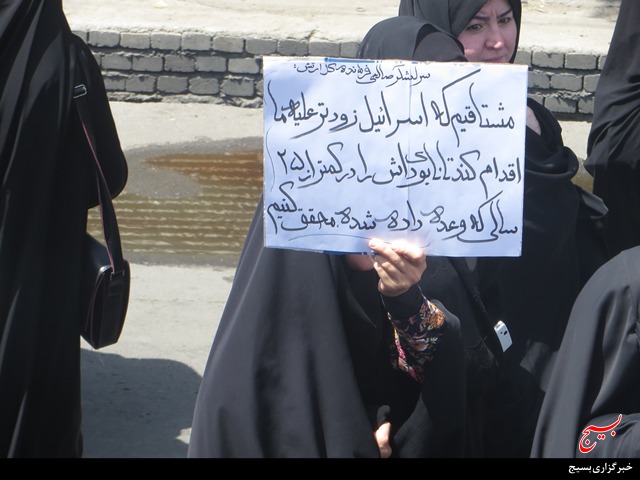 سرلشکر صالحی فرمانده کل ارتش:
مشتاقیم که اسرائیل زودتر علیه ما
اقدام کند تا نابودی‌اش را در کمتر از ۲۵
سالی که وعده داده شده محقق کنیم
بسیج
خبرگزاری بسیج